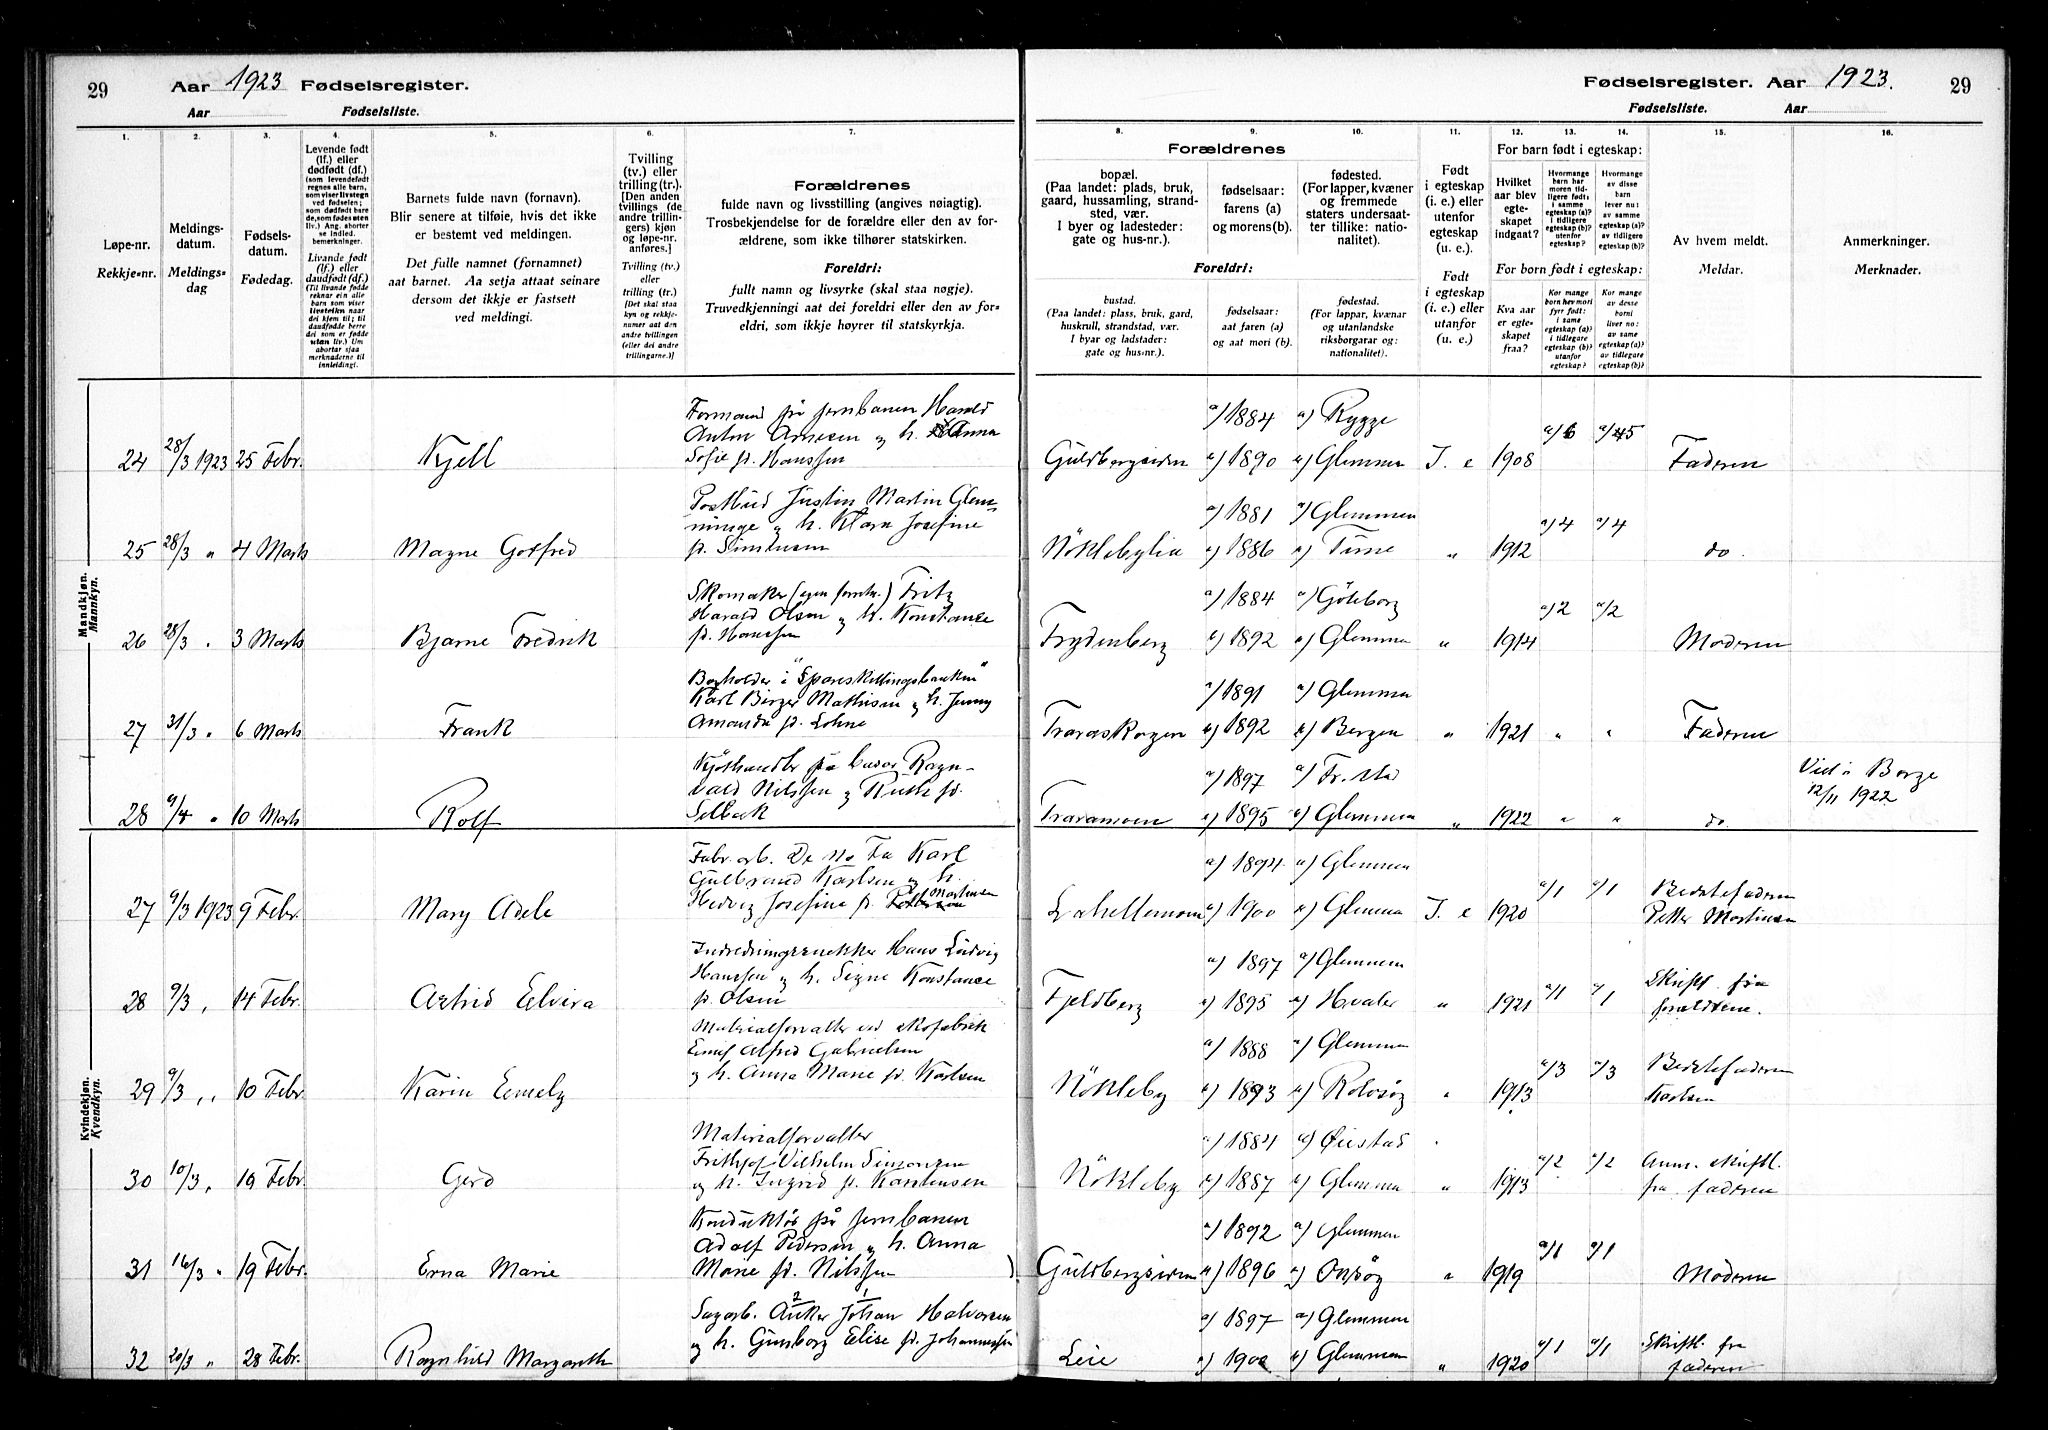 29 Aar 1923 Fødselsregister.
Aar Fødselsliste.
1. 2. 3. 4. 5. 6. 7.
Løpe-nr.
Rekkje-nr.
Meldings-
datum.
Meldings-
dag
Fødsels-
datum.
Fødedag.
Levende født
(lf.) eller
dødfødt (df.)
(som levendefødt
regnes alle barn,
som viser livstegn
ved fødselen;
som dødfødt bare
de, som fødes uten
liv.) Ang. aborter
se indled.
bemerkninger.
Livande født
(lf.) eller
daudfødt (df.)
(Til livande fødde
reknar ein alle
barn som viser
livsteikn naar
dei kjem til; til
daudfødde berre
dei som er fødde
utan liv.) Um
abortar sjaa
merknaderne til
innleidingi.
Barnets fulde navn (fornavn).
Blir senere at tilføie, hvis det ikke
er bestemt ved meldingen.
Det fulle namnet (fornamnet)
aat barnet. Aa setja attaat seinare
dersom det ikkje er fastsett
ved meldingi.
Tvilling
(tv.) eller
trilling (tr.).
[Den anden
tvillings (de
andre trillin-
gers) kjøn
og løpe-nr.
anføres.]
Tvilling (tv.)
eller
trilling (tr.)
[Det skal staa
kyn og rekkje-
numer aat den
andre tvillingen
(eller dei andre
trillingarne.)]
Forældrenes
fulde navn og livsstilling (angives nøiagtig).
Trosbekjendelse for de forældre eller den av for-
ældrene, som ikke tilhører statskirken.
Foreldri:
fullt namn og livsyrke (skal staa nøgje).
Truvedkjenningi aat dei foreldri eller den av for-
eldri, som ikkje høyrer til statskyrkja.
Mandkjøn.
Mannkyn.
24 28/3 1923 25 Febr. Kjell
Formand på jernbanen Harald
Anton Arnesen og h. Anna
Sofie f. Hanssen
25 28/3 " 4 Marts Magne Gotfred
Postbud Justin Martin Glem-
minge og h. Klara Josefine
f. Simensen
26 28/3 " 3 Marts Bjarne Fredrik
Skomaker (egen forretn.) Fritz
Harald Olsen og h. Konstanse
f. Hanssen
27 31/3 " 6 Marts Frank
Bogholder i "Spareskillingsbanken"
Karl Birger Mathisen og h. Jenny
Amanda f. Lohne
28 9/4 " 10 Marts Rolf
Kjøthandler på basar Ragn-
vald Nilssen og Ruth f.
Selbæk
Kvindekjøn.
Kvendkyn.
27 9/3 1923 9 Febr. Mary Adele
Fabr. arb. De No Fa Karl
Gulbrand Karlsen og h.
Hedvig Josefine f. Martinsen
28 9/3 " 14 Febr. Astrid Elvira
Indredningssnekker Hans Ludvig
Hanssen og h. Signe Konstanse
f. Olsen
29 9/3 " 10 Febr. Karin Emely
Materialforvalter ved skofabrik
Emil Alfred Gabrielsen
og h. Anna Marie f. Karlsen
30 10/3 " 19 Febr. Gerd
Materialforvalter
Frithjof Vilhelm Simonsen
og h. Ingrid f. Karstensen
31 16/3 " 19 Febr. Erna Marie
Konduktør på jernbanen
Adolf Pedersen og h. Anna
Marie f. Nilssen
32 20/3 " 28 Febr. Ragnhild Margareth
Sagarb. Anker Johan Halvorsen
og h. Gunborg Elise f. Johannessen
Fødselsregister. Aar 1923. 29
Fødselsliste. Aar
8. 9. 10. 11. 12. 13. 14. 15. 16.
Forældrenes
bopæl.
(Paa landet: plads, bruk,
gaard, hussamling, strand-
sted, vær.
I byer og ladesteder:
gate og hus-nr.).
fødselsaar:
farens (a)
og morens (b).
fødested.
(For lapper, kvæner
og fremmede
staters undersaat-
ter tillike: natio-
nalitet).
Foreldri:
bustad.
(Paa landet: plass, bruk, gard,
huskrull, strandstad, vær.
I byar og ladstader:
gate og hus-nr.).
fødselsaar:
aat faren (a)
og aat mori (b).
fødestad.
(For lappar, kvænar
og utanlandske
riksborgarar og:
nationalitet).
Født
i egteskap
(i. e.) eller
utenfor
egteskap
(u. e.).
Født
i egteskap
(i. e.) eller
utanfor
(u. e.).
For barn født i egteskap:
Hvilket
aar blev
egte-
skapet
indgaat?
Hvormange
barn har
moren tid-
ligere født:
i samme
egteskap (a)?
i tidligere
egteskap (b)?
utenfor
egteskap?
Hvormange
av disse
barn
lever nu:
av samme
egteskap (a)?
av tidligere
egteskap (b)?
For born født i egteskap:
Kva aar
er egte-
skapet
fraa?
Kor mange
born hev mori
fyrr født:
i same
egteskap (a)?
i tidlegare
egteskap (b)?
utanfor
egteskap?
Kor mange
av desse
borni
liver no:
av same
egteskap (a)?
av tidlegare
egteskap (b)?
Av hvem meldt.
Meldar.
Anmerkninger.
Merknader.
a) 1884 a) Rygge
Guldbergsiden b) 1890 b) Glemmen I. e 1908 a/6 a/5 Faderen
a) 1881 a) Glemmen
Nöklebylia b) 1886 b) Tune " 1912 a/4 a/4 do.
a) 1884 a) Göteborg
Frydenberg b) 1892 b) Glemmen " 1914 a/2 a/2 Moderen
a) 1891 a) Glemmen
Traraskogen b) 1892 b) Bergen " 1921 " " Faderen
a) 1897 a) Fr.stad
Traramoen b) 1895 b) Glemmen " 1922 " " do.
Viet i Borge
12/11 1922
a) 1894 a) Glemmen
Lahellemoen b) 1900 b) Glemmen I. e 1920 a/1 a/1 Bedstefaderen
Petter Martinsen
a) 1897 a) Glemmen
Fjeldberg b) 1895 b) Hvaler " 1921 a/1 a/1 Skriftl. fra
forældrene.
a) 1888 a) Glemmen
Nökleby b) 1893 b) Rolvsøy " 1913 a/3 a/3 Bedstefaderen
Karlsen
a) 1884 a) Øiestad
Nökleby b) 1887 b) Glemmen " 1913 a/2 a/2 Anm. skriftl.
fra faderen
a) 1892 a) Glemmen
Guldbergsiden b) 1896 b) Onsøy " 1919 a/1 a/1 Moderen
a) 1897 a) Glemmen
Leie b) 1902 b) Glemmen " 1920 a/1 a/1 Skriftl. fra
faderen